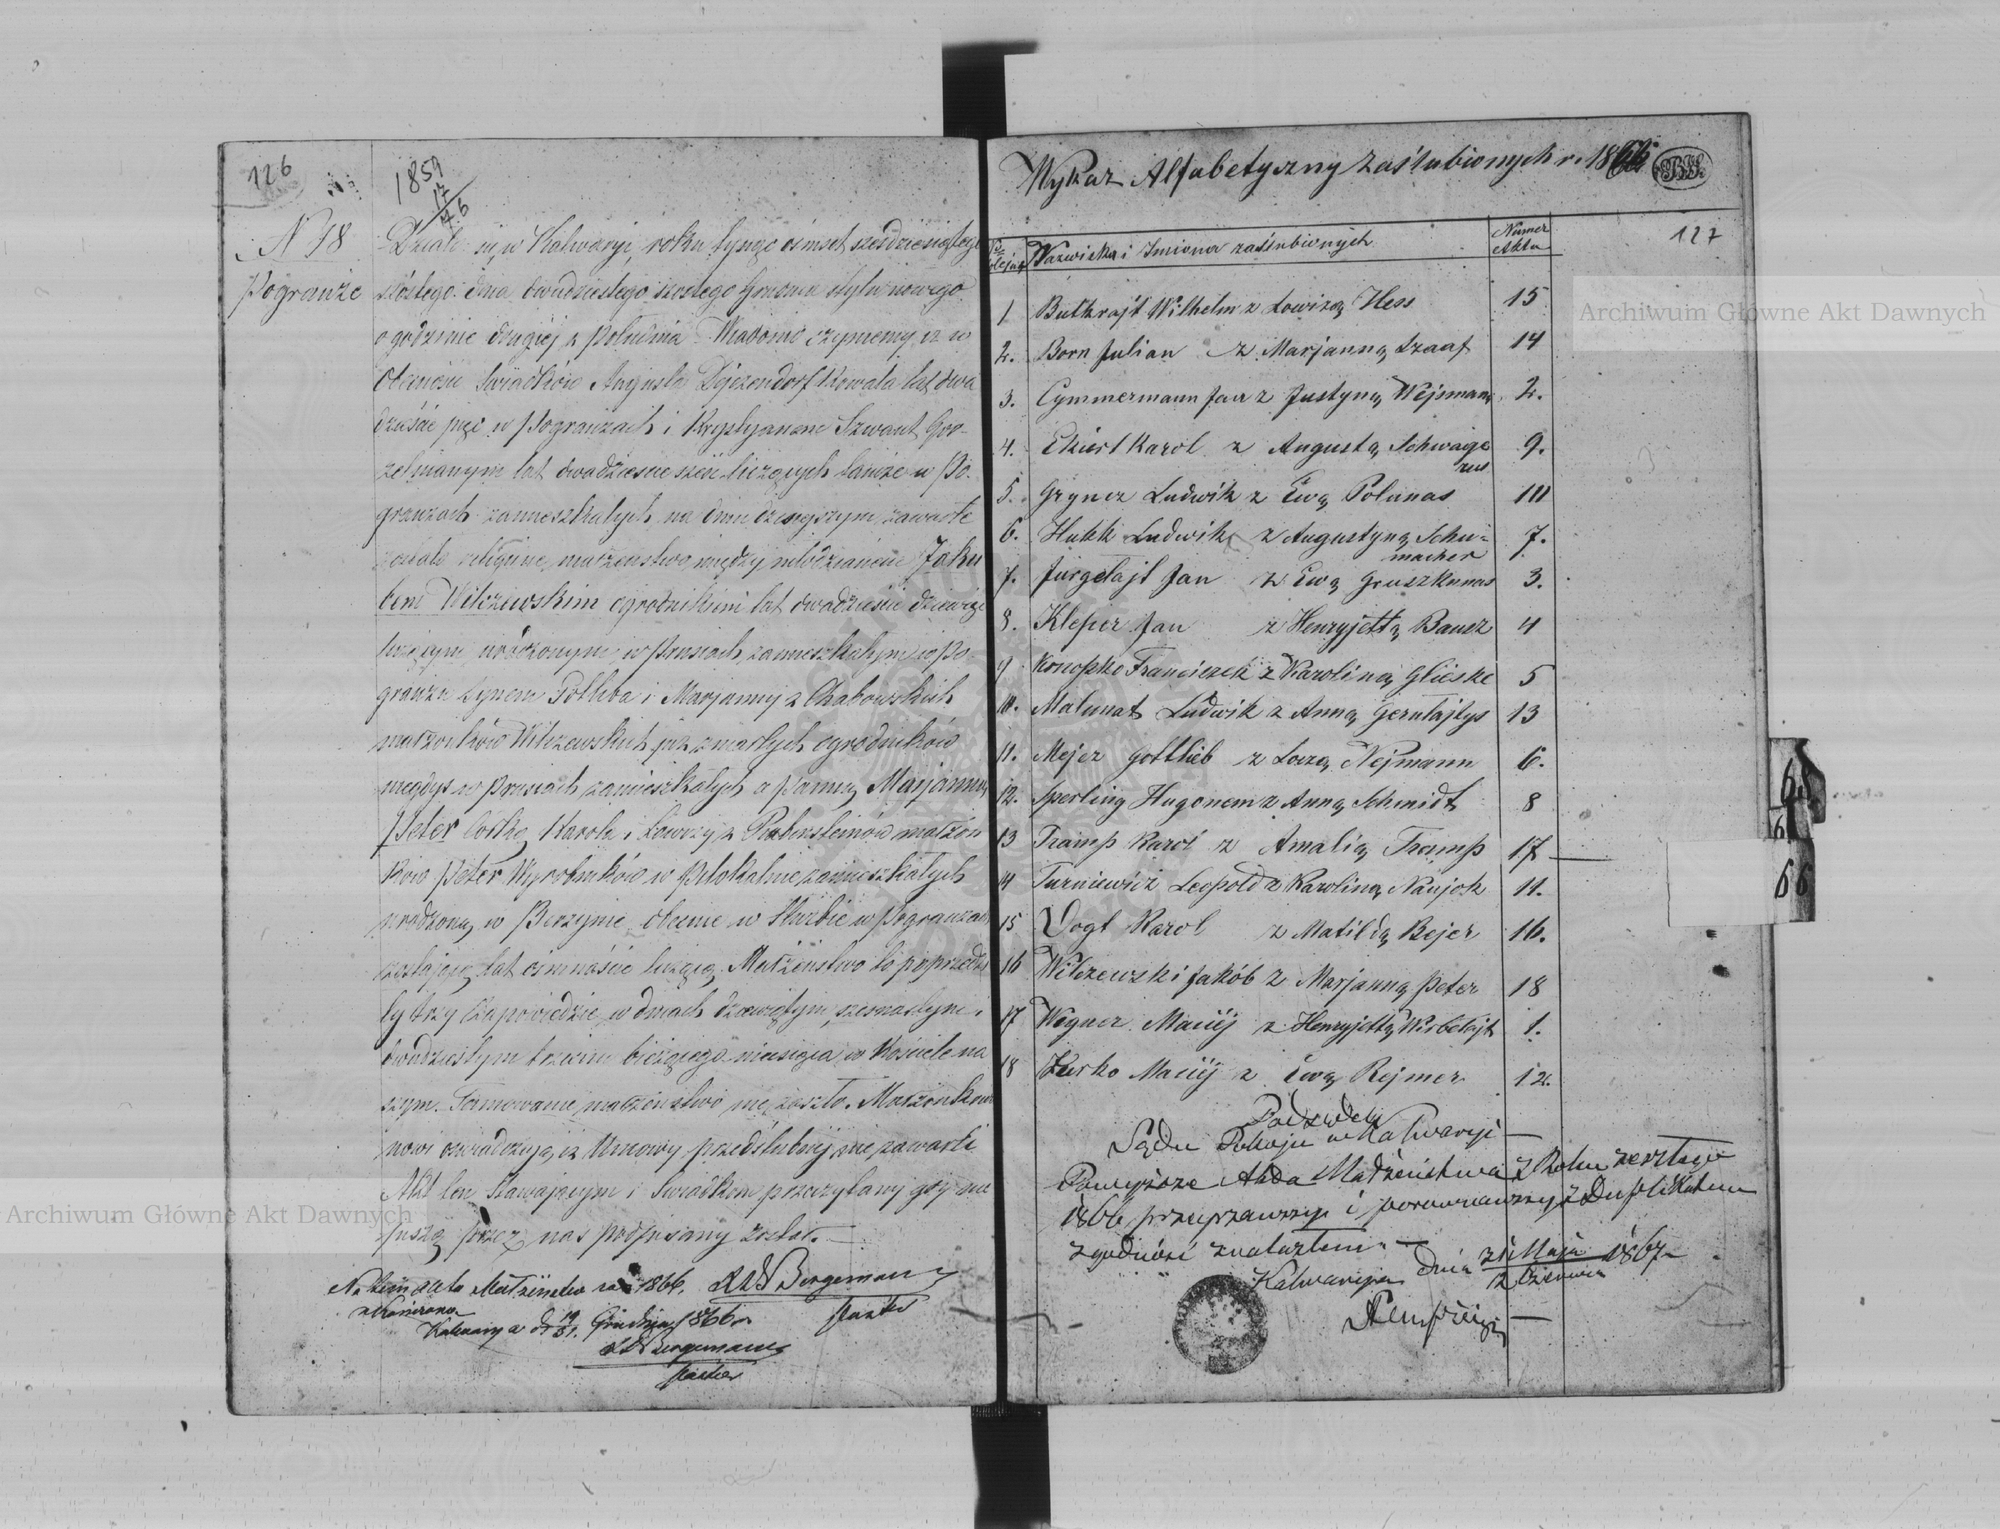 126
1859
17
46
N 18
Pogranże
Działo się w Kalwaryi, roku tysiąc ośmset sześdziesiątego
szóstego dnia dwudziestego szóstego Grudnia stylu nowego
o godzinie drugiej z południa. Wiadomo czynimy iż w
obecności Świadków Augusta Dyczendorf Kowala lat dwa
dzieścia pięć w Pogranżach i Krystyanem Szwant Gor-
zelnianym lat dwadzieścia sześć liczących także w Po-
granżach zamieszkałych, na dniu dzisiejszym zawarte
zostało religijne małżeństwo między młodzianem Jaku
bem Wilczewskim ogrodnikiem lat dwadzieścia dziewięć
liczącym urodzonym w Prusiech zamieszkałym w Po-
granżu Synem Gottliba i Marjanny z Chabowskich
małżonków Wilczewskich już zmarłych ogrodników
niegdyś w Prusiech zamieszkałych a Panną Marjanną
Peter Córką Karola i Lowizy z małżon
ków Peter Wyrobników w zamieszkałych
urodzoną w obecnie w Służbie w Pogranżach
zostającą lat ośmnaście liczącą. Małżeństwo to poprzedzi
ły trzy Zapowiedzie w dniach dziewiątym, szesnastym i
dwudziestym trzecim bieżącego miesiąca w Kościele na
szym. Tamowanie małżeństwa nie zaszło. Małżonkowie
nowi oświadczają iż Umowy przedślubnej nie zawarli
Akt ten Stawającym i Świadkom przeczytany gdy nie
piszą przez nas podpisany został.
Bergemann
Pastor
Małżeństw 1866.
Kalwarya d 19/31. Grudnia 1866 r.
Bergemann
Pastor
Wykaz Alfabetyczny Zaślubionych r. 1866
127
Nazwiska i Imiona zaślubionych
Numer
Aktu
1 Butkrajt Wilhelm z Lowizą Hess 15
2. Born Julian z Marjanną Szaaf 14
3. Cymmermann Jan z Justyną Wejsmann 2.
4. Ekiert Karol z Augustą Schwaige
rus 9.
5. Gryner Ludwik z Ewą Polunas 10
6. Hukk Ludwik z Augustyną Schu-
macher 7.
7. Jurgełajt Jan z Ewą Gruszkunas 3.
8. Klepier Jan z Henryjettą Bausz 4
9 Konopko Franciszek z Karoliną Glieske 5
10. Malunat Ludwik z Anną Gerułajtys 13
11. Mejer Gottlieb z Loizą Nejmann 6.
12. Sperling Hugonem z Anną Schmidt 8
13 Tramp Karol z Amalią Tramp 17
14 Turniewicz Leopold z Karoliną Naujok 11.
15 Vogt Karol z Matildą Bejer 16.
16 Wilczewski Jakób z Marjanną Peter 18
17 Wegner Maciej z Henryjettą Wirbełajt 1.
18 Żurko Maciej z Ewą Rejmer 12.
Podsędek
Sądu Pokoju w Kalwaryi
Powyższe Akta Małżeństwa z Roku zeszłego
1866 przejrzawszy i porównawszy z Duplikatem
zgodność znalazłem
Kalwarya dnia 21 Maja
2 Czerwca 1867
66
Archiwum Główne Akt Dawnych
Archiwum Główne Akt Dawnych